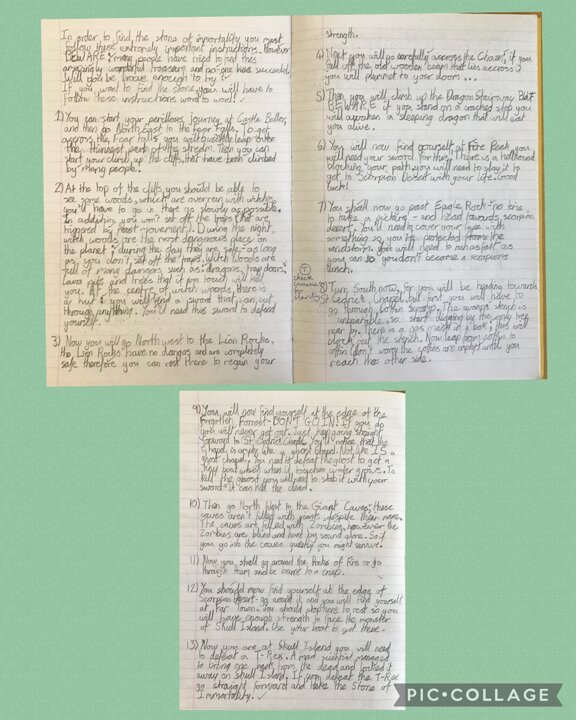 In order to find, the stone of immortality you must
follow these extremely important instructions. However
BEWARE: many people have tried to find this
amazingly wonderful treasure and no-one has succeeded.
Will you be brave enough to try?
If you want to find the stone, you will have to
follow these instructions word to word!
1) You can start your perillous journey at Castle
and then go North East to the Fear Falls. To get
accross the Fear Falls, you will leap over
the thinnest part of the stream. Then you can
start your climb up the cliffs that have been climbed
by many people.
2) At the top of the cliffs, you should be able to
see some woods, which are overrun with witches
you'll have to go in there as slowly as possible.
In addition you won't set off the traps (that are
triggered by fast movement). During the night,
witch woods are the most dangerous place on
the planet; during the day they are safe - as long
as you don't set off the traps. Witch woods are
full of many dangers such as: dragons, trap doors,
lava pits and trees that if you touch will kill
you. At the centre of witch woods, there is
a hut & you will find a sword that can cut
through anything. You'll need this sword to defend
yourself.
3) Now you will go North west to the Lion Rocks,
the Lion Rocks have no danger and are completely
safe therefore you can rest there to regain your
strength.
4) Next you will go carefully accross the Chasm, if you
fall off the old wooden beam that lies accross it
you will plummet to your doom...
5) Then you will climb up the Dragon Stairway BUT
BEWARE if you stand on a step you
will awaken a sleeping dragon that will eat
you alive.
6) You will now find yourself at Fire Peak you
will need your sword for this. There is a
blocking your path you will need to slay it to
get to Scorpion Desert with your life. Good
luck!
7) You shall now go past Eagle Rock - no time
to take a picture - and head towards scorpion
desert. You'll need to cover your face with
something so you're protected from the
sandstorm. You will need to run as fast as
you can so you don't become a scorpions
lunch.
T
check
commas
for
clarity
8) Turn South now, for you will be heading towards
St Cedric's Chapel but first you will have to
go through coffin swamp. The swamp's stench is
unbearable, so start digging by the only tree
near by. There is a gas mask in a box, this will
block out the stench. Now leap from coffin to
coffin (don't worry the coffins are empty) until you
reach the other side.
9) You will now find yourself at the edge of the
forgotten Forrest - DON'T GO IN! If you do
you will never get out. Just keep going straight
forward to St Cedrics Chapel. You'll notice that the
chapel is empty like a ghost chapel. No, it IS a
ghost chapel. You need to defeat the ghost to get a
boat which when it touches water grows. To
kill the ghost you will need to stab it with your
sword - it can kill the dead.
10) Then go North West to the Giant Caves; these
caves aren't filled with giants, despite their name.
The caves are filled with Zombies, however the
Zombies are blind and hunt by sound alone. So if
you go into the caves quietly you might survive.
11) Now you shall go around the Rocks of Fire or go
through them and be burnt to a crisp.
12) You should now find yourself at the edge of
Scorpion desert - go around it and you will find yourself
at Far Town. You should stop here to rest so you
will have enough strength to face the monster
of Skull Island. Use your boat to get there.
13) Now you are at Skull Island you will need
to defeat a T-Rex. A mad scientist managed
to bring one back from the dead and locked it
away on Skull Island. If you defeat the T-Rex
go straight forward and take the Stone of
Immortality.
PIC•COLLAGE